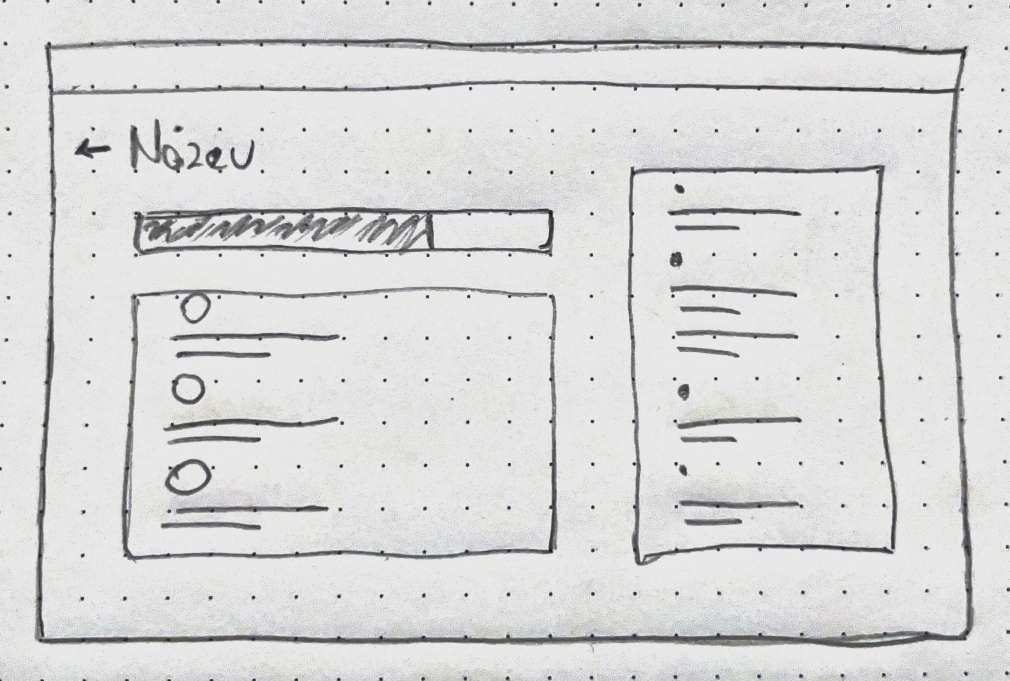 ← Název